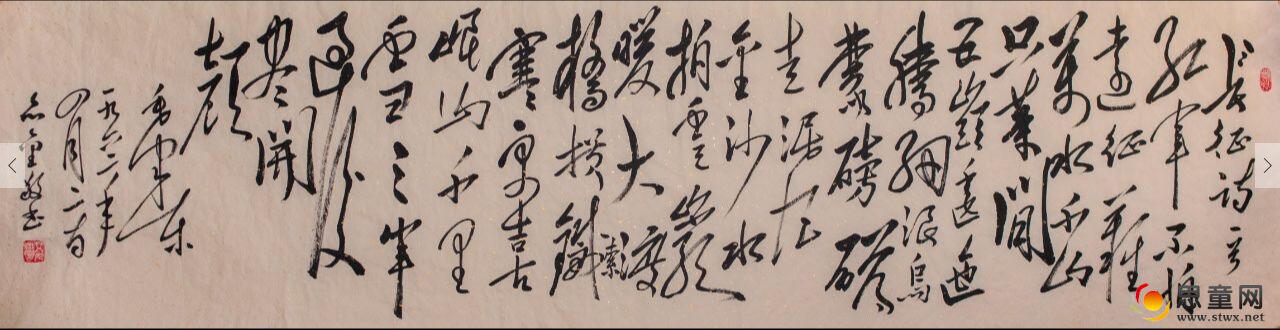 长征诗一首
红军不怕
远征难
万水千山
只等闲
五岭逶迤
腾细浪乌
蒙磅礴
走泥丸
金沙水
拍云崖
暖大渡
桥横铁索
寒更喜
岷山千里
雪三军
过后
尽开
颜
毛泽东
一九六二年
四月二十日
书
思童网
www.stwx.net